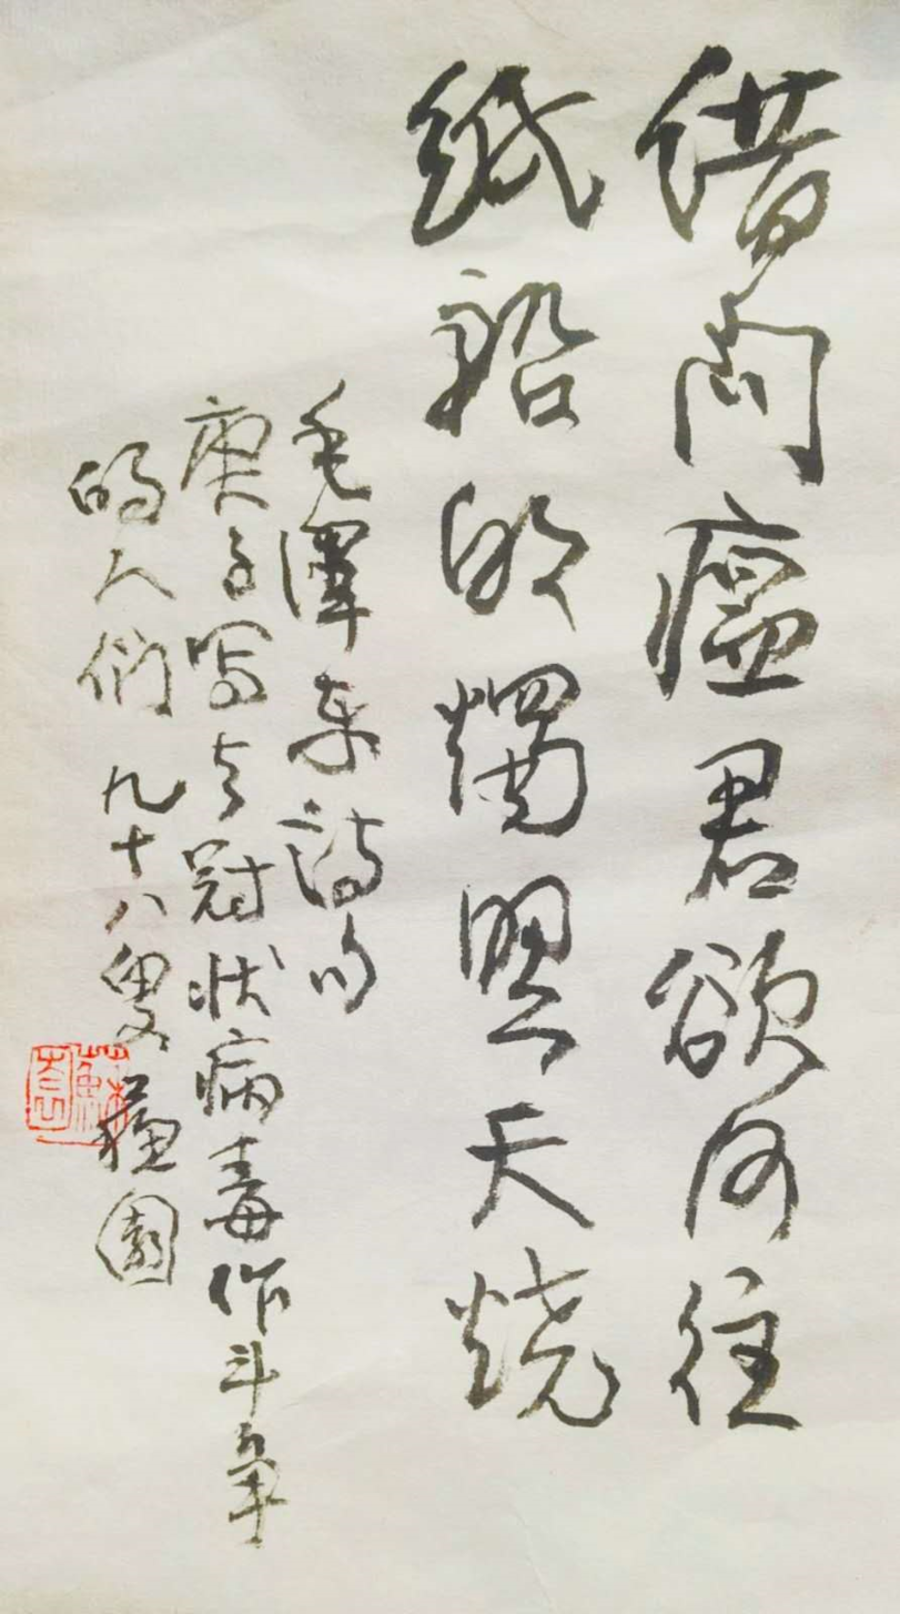 借问瘟君欲何往
纸船明烛照天烧
毛澤东詩句
庚子写与冠状病毒作斗争
的人们 九十八叟 蘓園